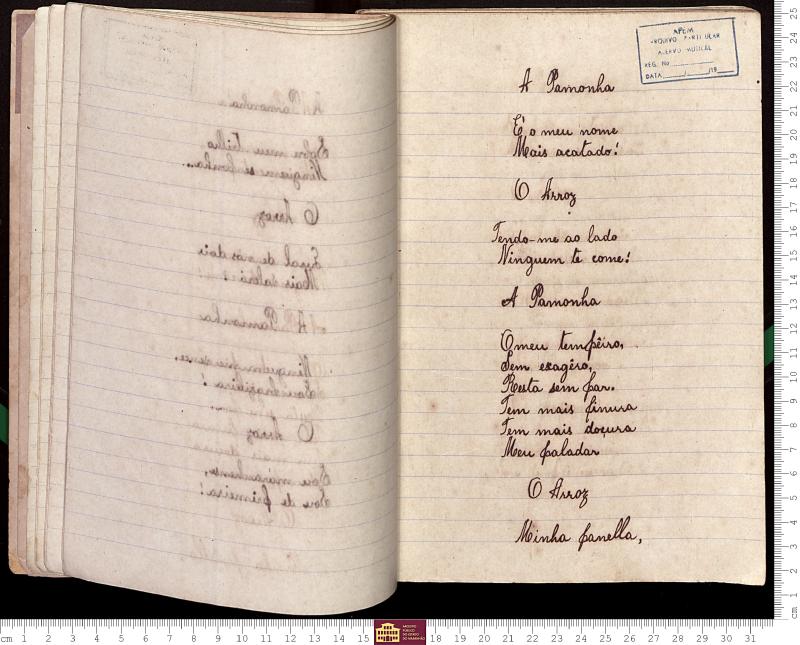 A Pamonha
É o meu nome
Mais acatado!
O Arroz
Tendo-me ao lado
Ninguem te come!
A Pamonha
O meu tempêiro,
Sem exagêro,
Resta sem par.
Tem mais finura
Tem mais doçura
Meu paladar
O Arroz
Minha panella,
APEM
ARQUIVO PARTICULAR
ACERVO MUSICAL
REG. No
DATA / /19
ARQUIVO
PÚBLICO
DO ESTADO
DO MARANHÃO
cm 1 2 3 4 5 6 7 8 9 10 11 12 13 14 15 18 19 20 21 22 23 24 25 26 27 28 29 30 31
cm 1 2 3 4 5 6 7 8 9 10 11 12 13 14 15 16 17 18 19 20 21 22 23 24 25